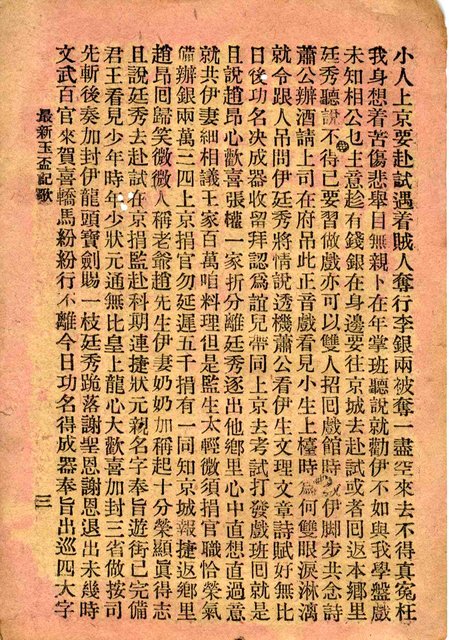 小人上京要赴試遇着賊人奪行李銀兩被奪一盡空來去不得真冤枉
我身想着苦傷悲舉目無親卜在年掌班聽說就勸伊不如與我學盤戲
未知相公乜主意趁有錢銀在身邊要往京城去赴試或者囘返本鄉里
廷秀聽說不得已要習做戲亦可以雙人招囘戲館時 伊脚步共念詩
蕭公辦酒請上司在府吊此正音戲看見小生上檯時為何雙眼淚淋漓
就令跟人吊問伊廷秀將情說透機蕭公看伊生文理文章詩賦好無比
日後功名決成器收留拜認為誼兒帶同上京去考試打發戲班囘就是
且說趙昂心歡喜張權一家折分離廷秀逐出他鄉里心中直想直過意
就共伊妻細相議王家百萬咱料理但是監生太輕微須捐官職恰榮氣
備辦銀兩萬三四上京捐官勿延遲五千捐有一同知京城報捷返鄉里
趙昂囘歸笑微微人稱老爺趙先生伊妻奶奶加稱起十分榮顯眞得志
且說廷秀去赴試在京捐監赴科期連捷狀元親名字奉旨遊街已完備
君王看見少年時年少狀元通無比皇上龍心大歡喜加封三省做按司
先斬後奏加封伊龍頭寶劍賜一枝廷秀跪落謝聖恩謝恩退出未幾時
文武百官來賀喜轎馬紛紛行不離今日功名得成器奉旨出巡四大字
最新玉盃記歌
三